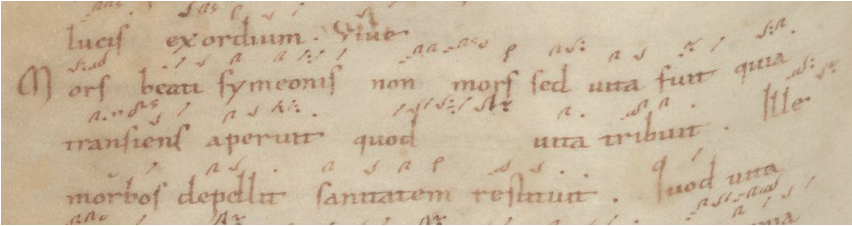 lucis exordium. Siue
Mors beati symeonis non mors sed uita fuit quia
transiens aperuit quod uita tribuit. Ille
morbos depellit sanitatem restituit. Quod uita